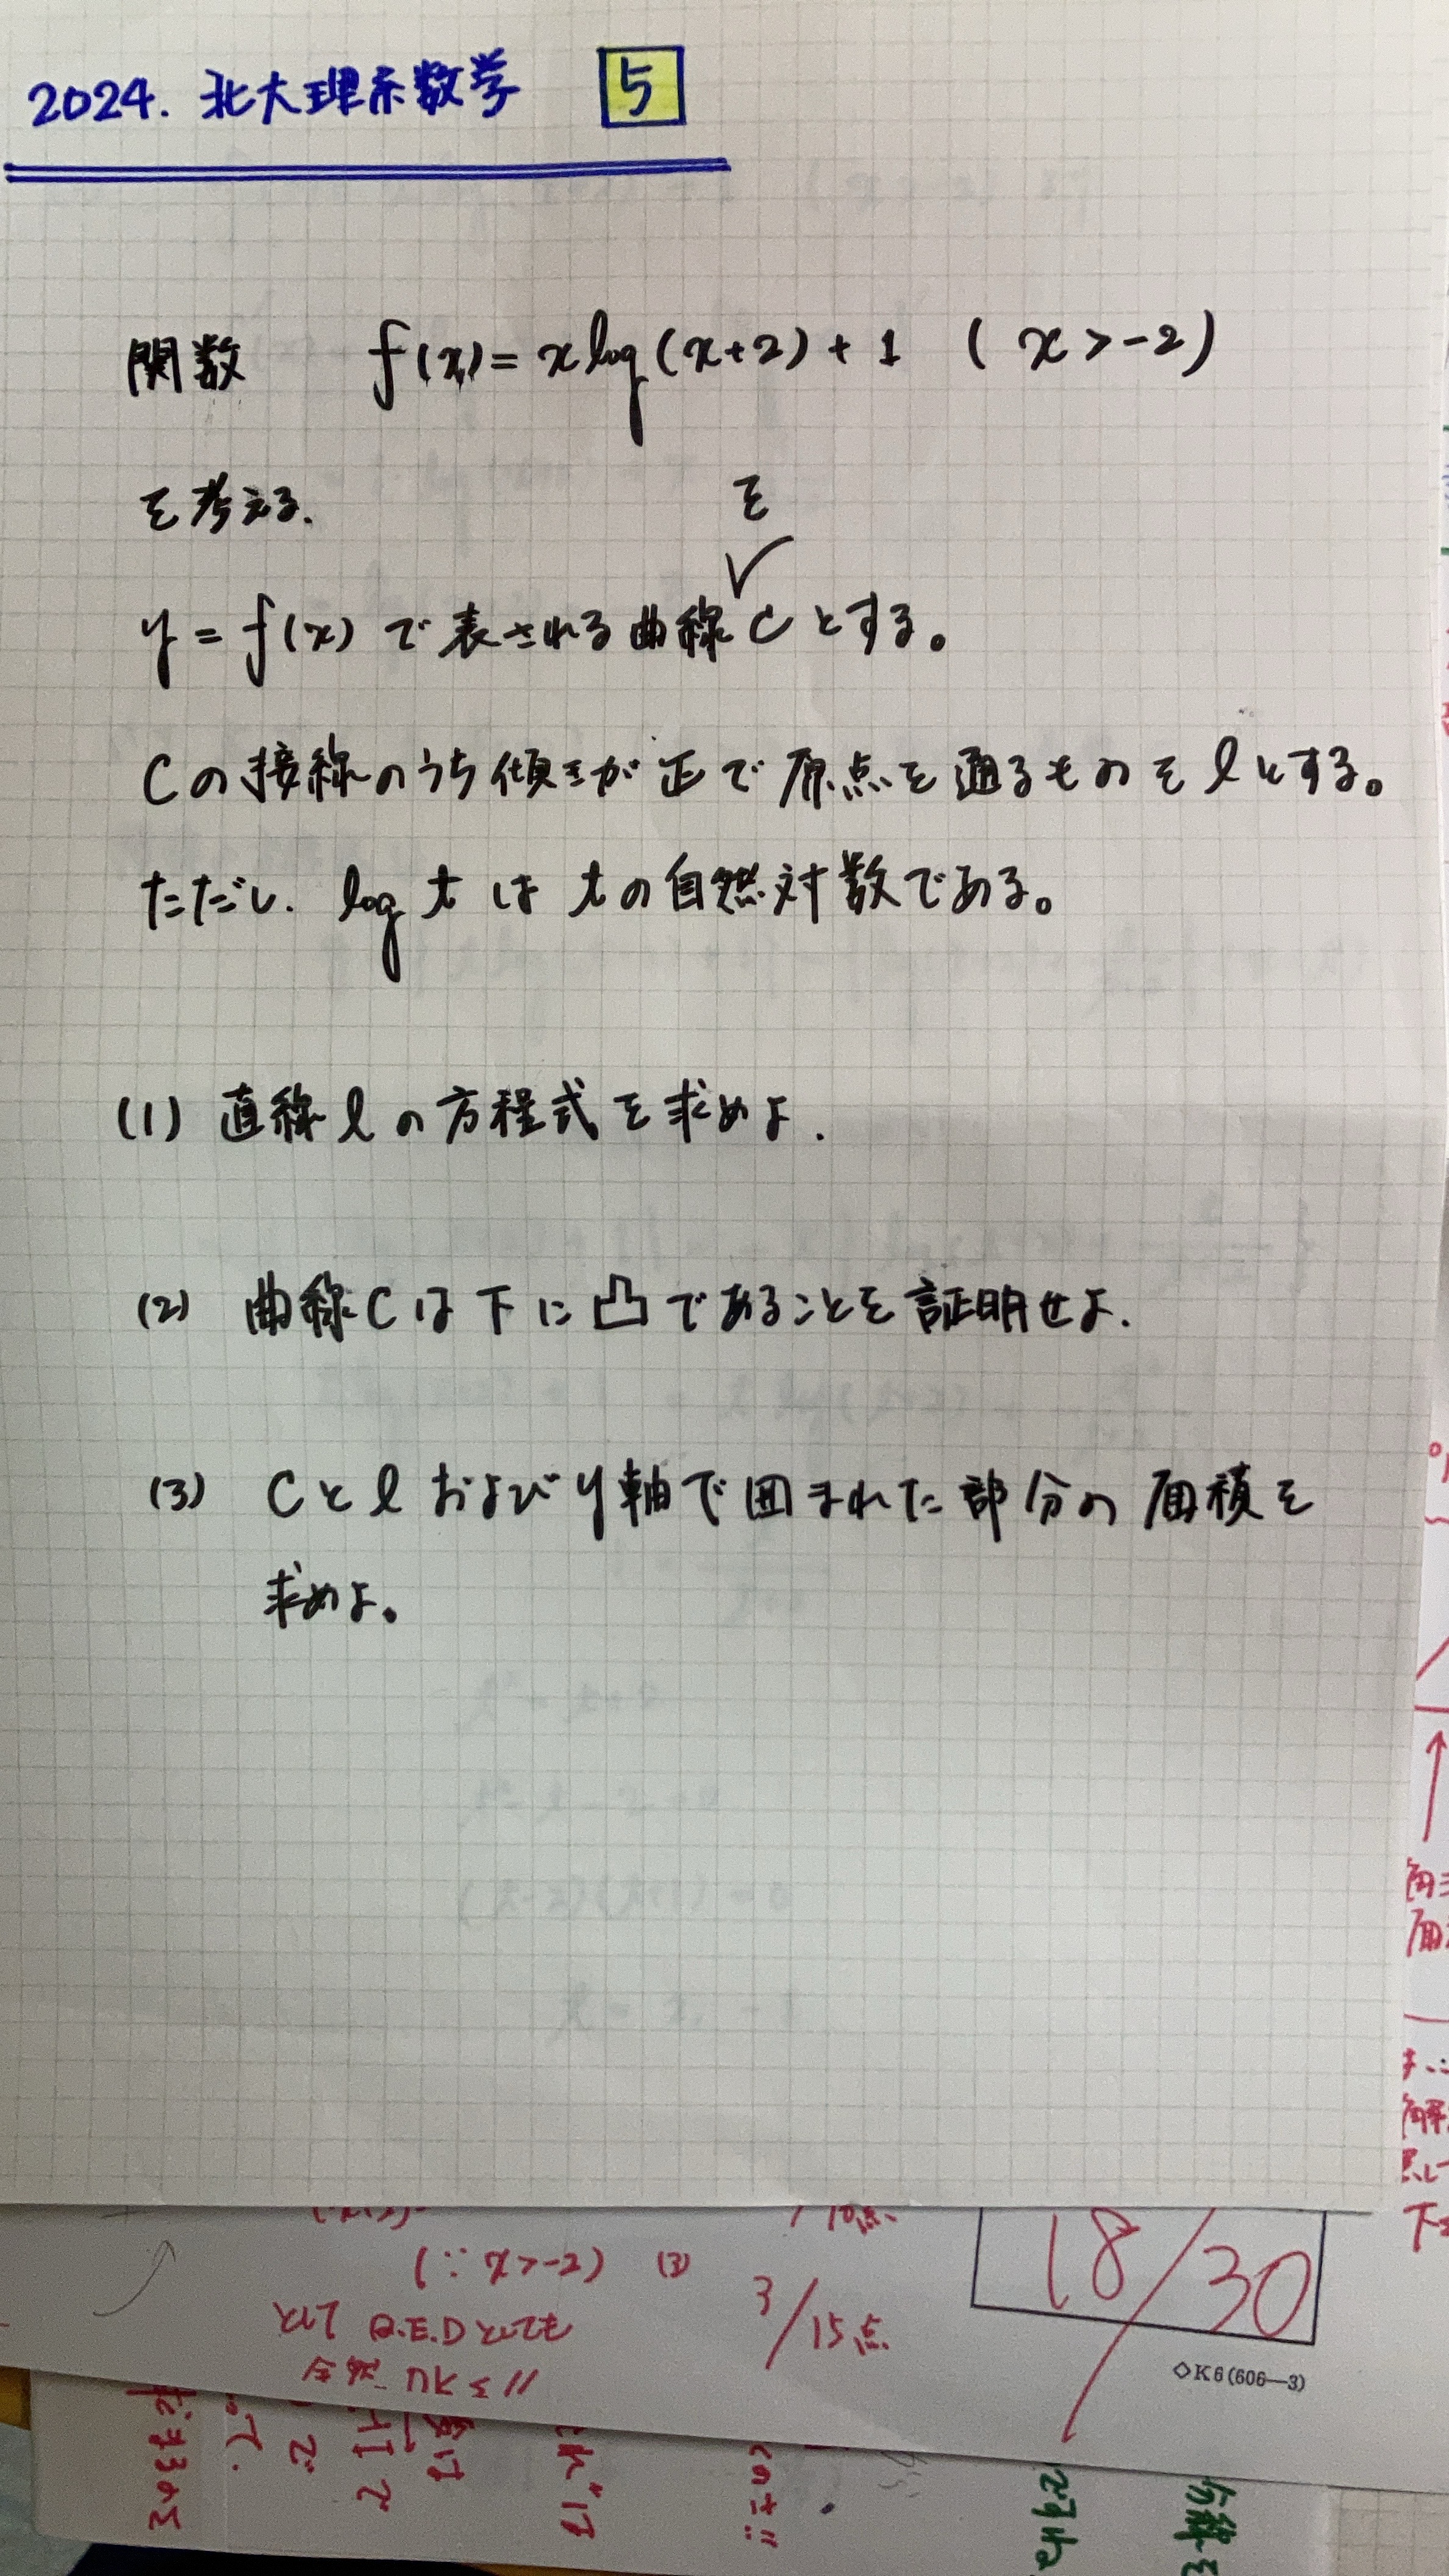 2024. 北大理系数学 5
関数 f(x) = x log(x+2) + 1 (x > -2)
を考える.
を
y = f(x) で表される曲線 C とする。
Cの接線のうち傾きが正で原点を通るものを l とする。
ただし. log t は tの自然対数である。
(1) 直線 l の方程式を求めよ.
(2) 曲線 C は下に凸であることを証明せよ.
(3) C と l および y 軸で囲まれた部分の面積を
求めよ。
(∵ x > -2) (3)
3/15点
18/30
◇K6(606—3)